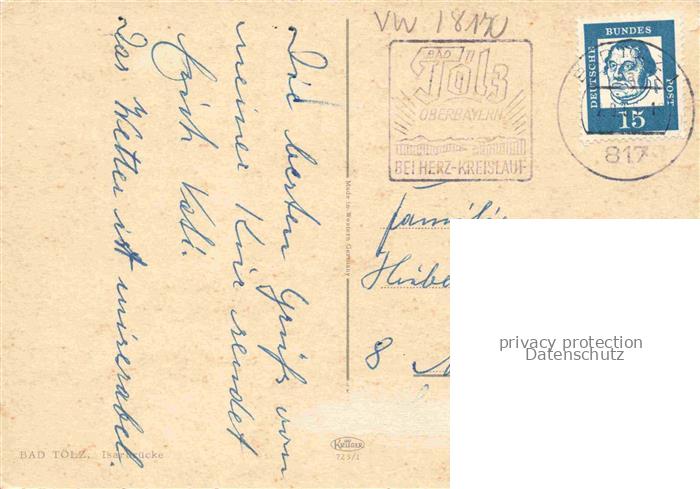 VW 18170
BAD
Tölz
OBERBAYERN
BEI HERZ-KREISLAUF-
DEUTSCHE
BUNDES
POST
15
817
Die besten Grüße von
meiner Kur sendet
Euch
Das Wetter ist miserabel.
Made in Western Germany
Familie
8
privacy protection
Datenschutz
KRÜGER
725/1
BAD TÖLZ, Isarbrücke